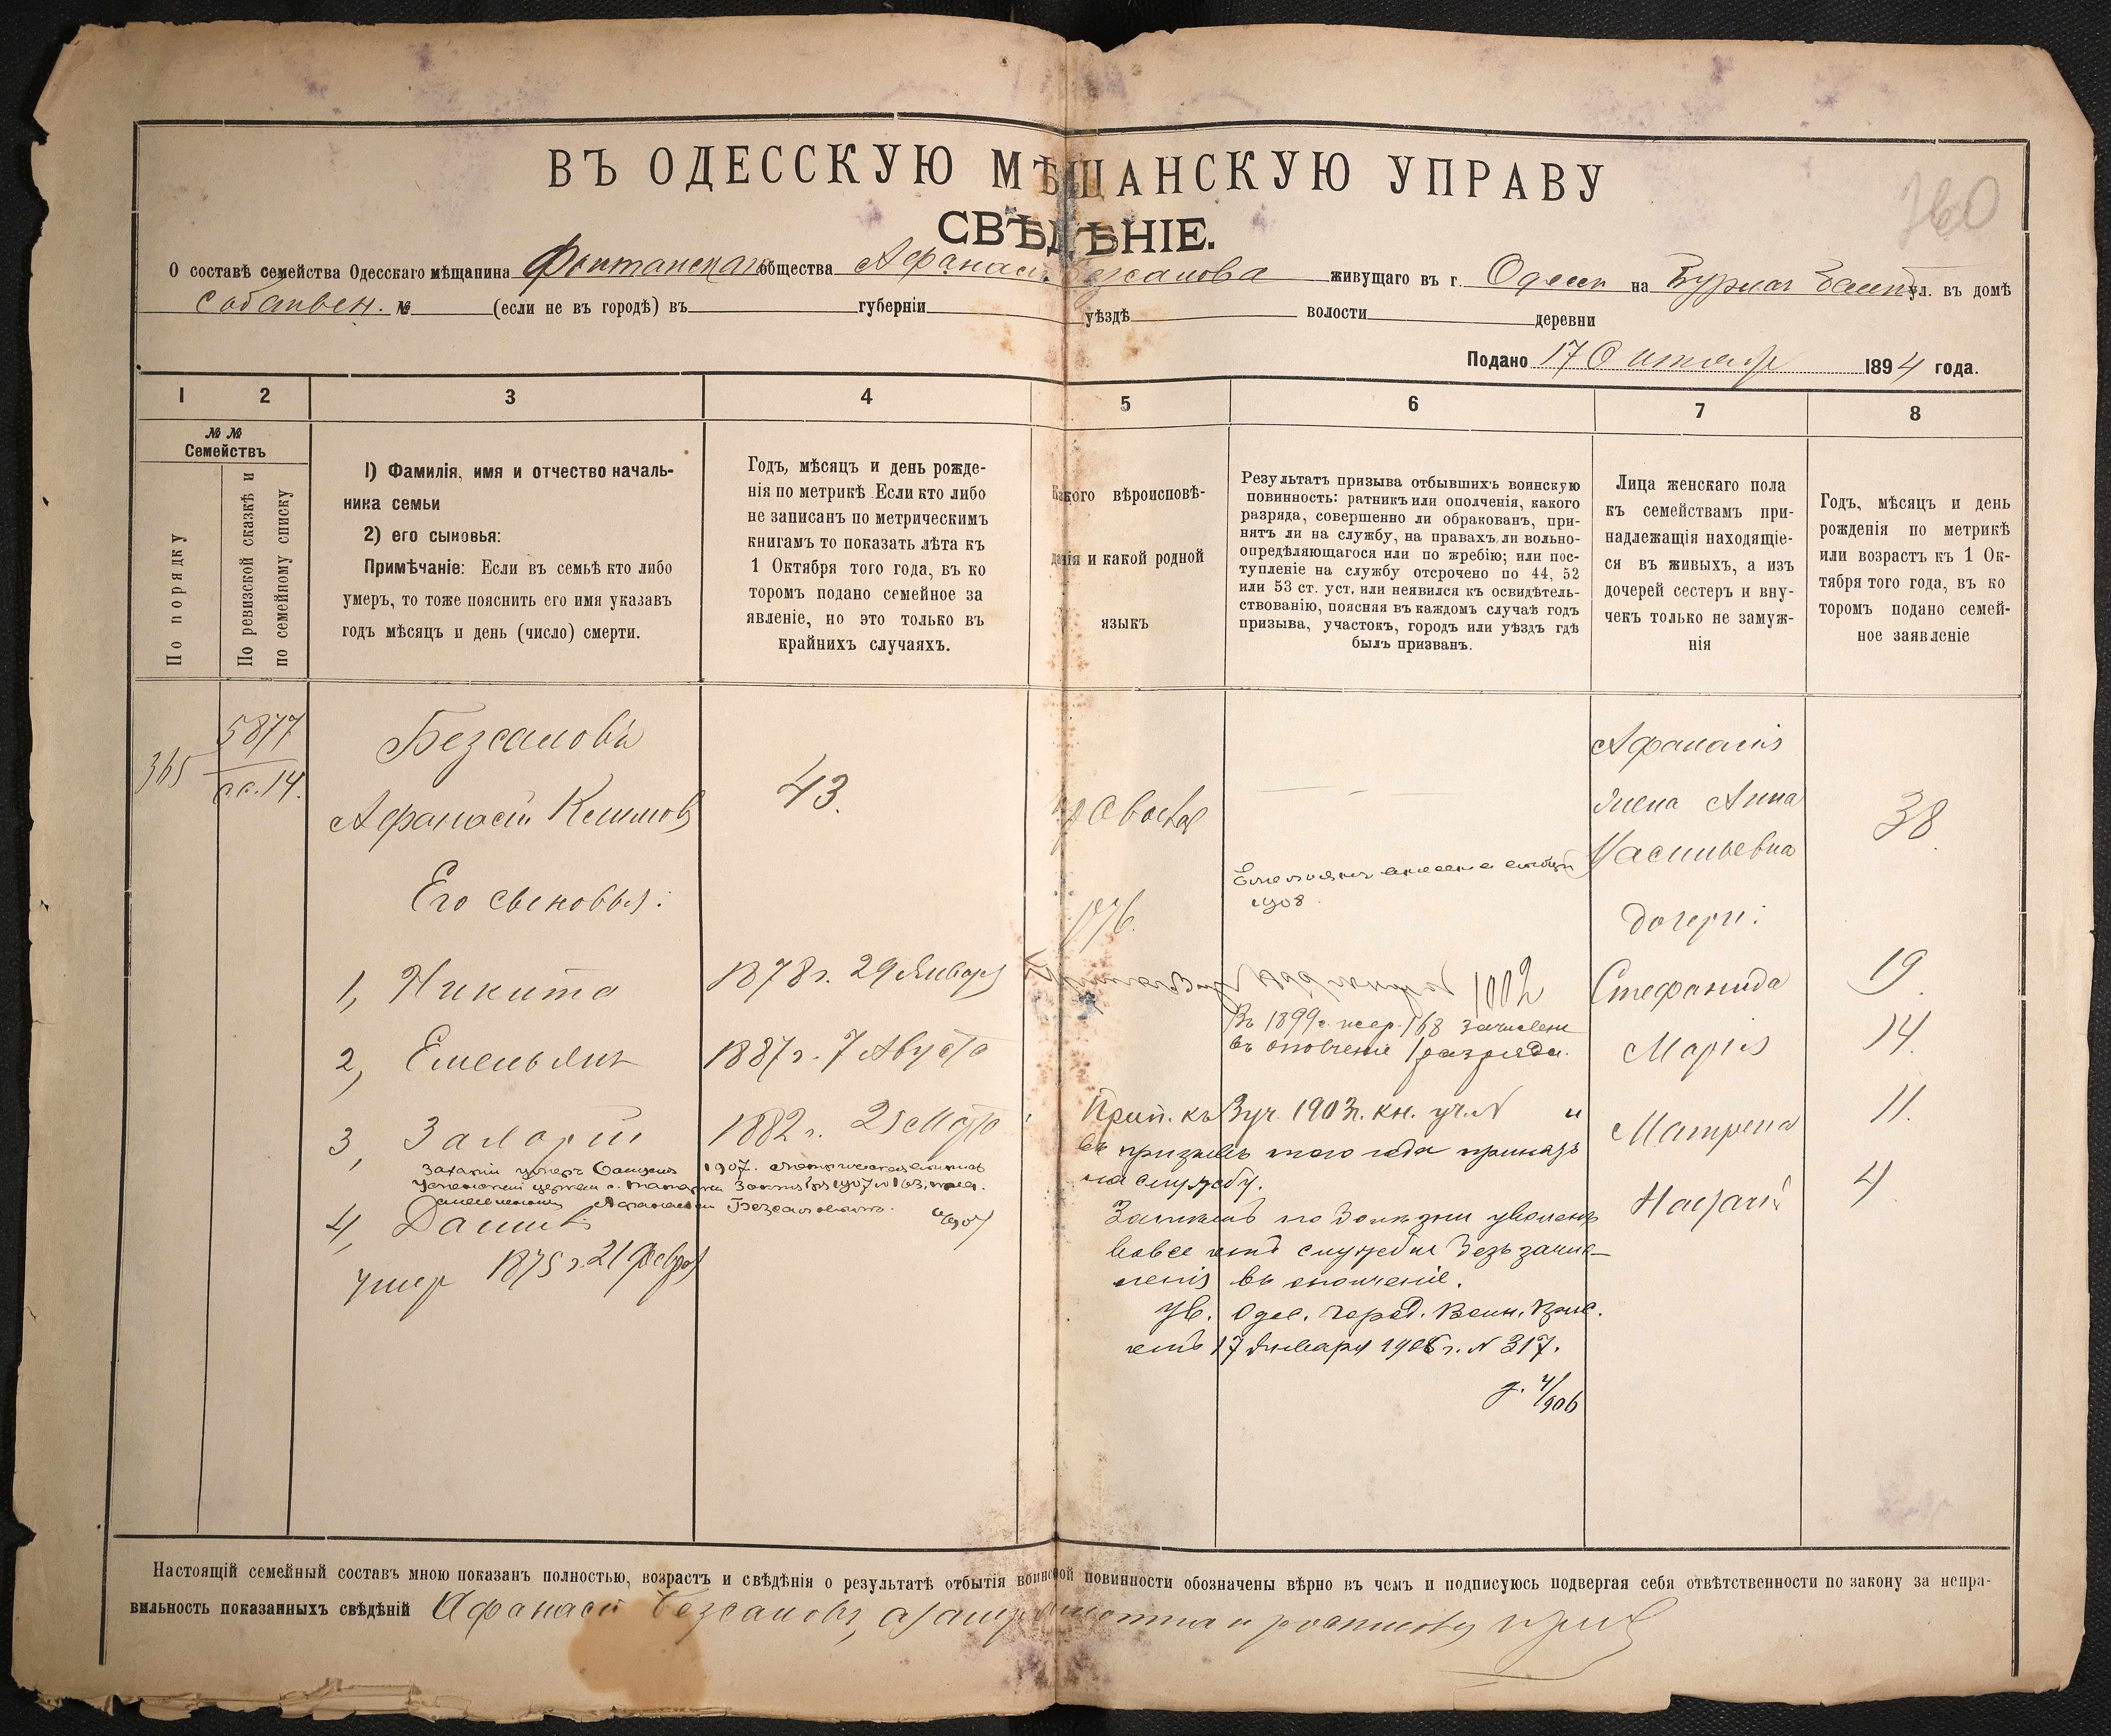 ВЪ ОДЕССКУЮ МѢЩАНСКУЮ УПРАВУ
СВѢДѢНІЕ.
360
О составѣ семейства Одесскаго мѣщанина Фонтанскаго общества Афанасія Безсалова живущаго въ г. Одессѣ на ул. въ домѣ
собствен. № (если не въ городѣ) въ губерніи уѣздѣ волости деревни
Подано 17 Октября 1894 года.
1 2 3 4 5 6 7 8
№ № Семействъ
По порядку
По ревизской сказкѣ и по семейному списку
1) Фамилія, имя и отчество началь-
ника семьи
2) его сыновья:
Примѣчаніе: Если въ семьѣ кто либо
умеръ, то тоже пояснить его имя указавъ
годъ мѣсяцъ и день (число) смерти.
Годъ, мѣсяцъ и день рожде-
нія по метрикѣ Если кто либо
не записанъ по метрическимъ
книгамъ то показать лѣта къ
1 Октября того года, въ ко
торомъ подано семейное за
явленіе, но это только въ
крайнихъ случаяхъ.
Какого вѣроисповѣ-
данія и какой родной
языкъ
Результатъ призыва отбывшихъ воинскую
повинность: ратникъ или ополченія, какого
разряда, совершенно ли обракованъ, при-
нятъ ли на службу, на правахъ ли вольно-
опредѣляющагося или по жребію; или пос-
тупленіе на службу отсрочено по 44, 52
или 53 ст. уст. или неявился къ освидѣтель-
ствованію, поясняя въ каждомъ случаѣ годъ
призыва, участокъ, городъ или уѣздъ гдѣ
былъ призванъ.
Лица женскаго пола
къ семействамъ при-
надлежащія находящіе-
ся въ живыхъ, а изъ
дочерей сестеръ и вну-
чекъ только не замуж-
нія
Годъ, мѣсяцъ и день
рожденія по метрикѣ
или возрастъ къ 1 Ок-
тября того года, въ ко
торомъ подано семей-
ное заявленіе
365
5877
14.
Безсаловъ
Афанасій Климовъ
43.
Его сыновья:
1, Никита 1878 г. 29 Января
2, Емельянъ 1887 г. 7 Августа
3, Захарій 1882 г. 25 Марта
Захарій умеръ 1907.
4, Даніилъ
умер 1875 г. 21 Февраля
1908
1002
Въ 1899 г. жер. 168 зачисленъ
въ ополченіе 1 разряда.
Прип. къ 3 уч. 1903 г. кн. уч. N и
въ призывъ того года принятъ
на службу.
по болѣзни уволенъ
вовсе отъ службы безъ зачис-
ленія въ ополченіе.
ув. Одес. город. Воин. Прис.
отъ 17 Января 1906 г. N 317.
4/906
Афанасія
жена Анна
Васильевна
38
дочери:
Стефанида 19
Марія 14.
Матрена 11.
4
Настоящій семейный составъ мною показанъ полностью, возрастъ и свѣдѣнія о результатѣ отбытія воинской повинности обозначены вѣрно въ чемъ и подписуюсь подвергая себя отвѣтственности по закону за непра-
вильность показанныхъ свѣдѣній Афанасій Безсаловъ, а